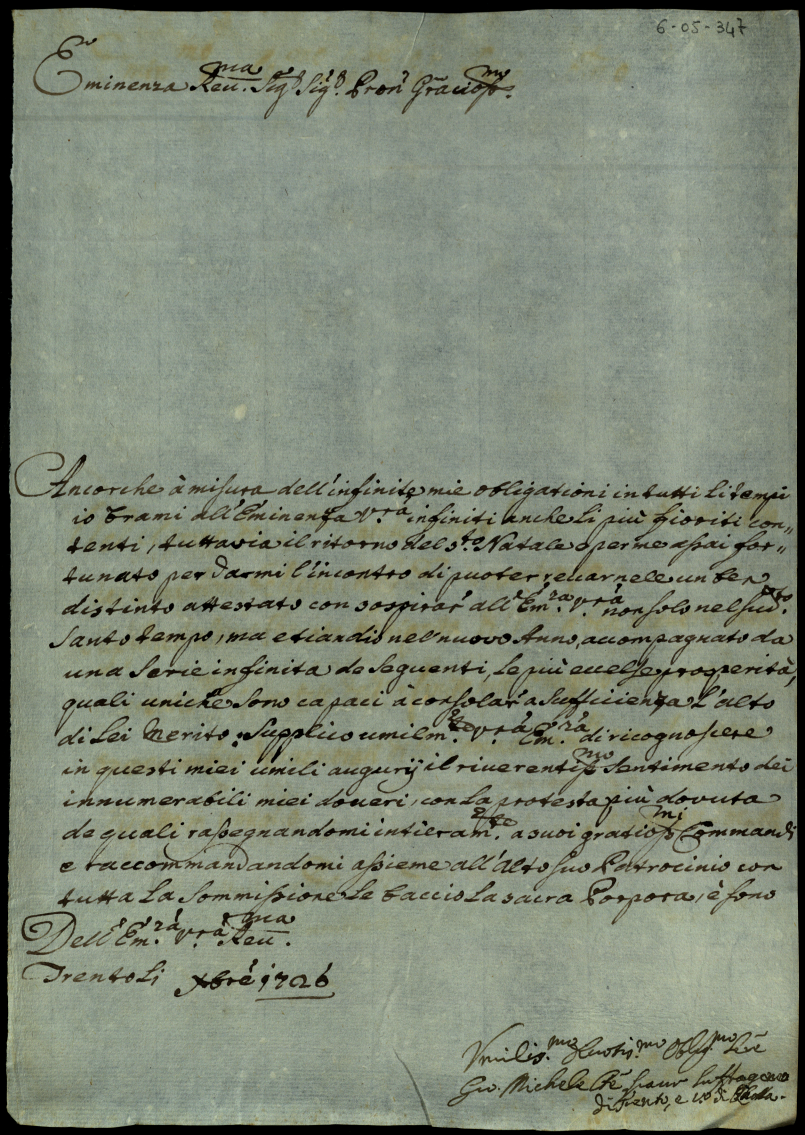 6-05-347
Eminenza Reu.ma Sig.r Sig.r Pron Gratiosmo
Ancorche à misura dell'infinite mie obligationi in tutti li tempi
io brami all'Eminenza V.rà infiniti anche li più fioriti con„
tenti, tuttavia il ritorno del s.to Natale è per me assai for„
tunato per darmi l'incontro di puoter recarnele un ben
distinto attestato con sospirar all'Em.za V.rà non solo nel sud.to
Santo tempo, ma etiandio nel nuovo Anno, accompagnato da
una serie infinita de seguenti, le più eccelse prosperità,
quali uniche sono capaci à consolar a sufficienza l'alto
di Lei Merito. Supplico umilm.te V.rà Em.zà di ricognoscere
in questi miei umili augurij il riverentissmo Sentimento dei
innumerabili miei doveri, con la protesta più dovuta
de quali rassegnandomi intieram.te a suoi gratiosmi Commandi
e raccommandandomi assieme all'alto suo Patrocinio con
tutta la sommissione le baccio la sacra Porpora, è sono
Dell'Em.zà V.rà Reu.ma
Trento li Xbrè 1726
Vmilis.mo Deuotis.mo Oblig.mo
Gio. Michele Suffraganeo
di Trento, e